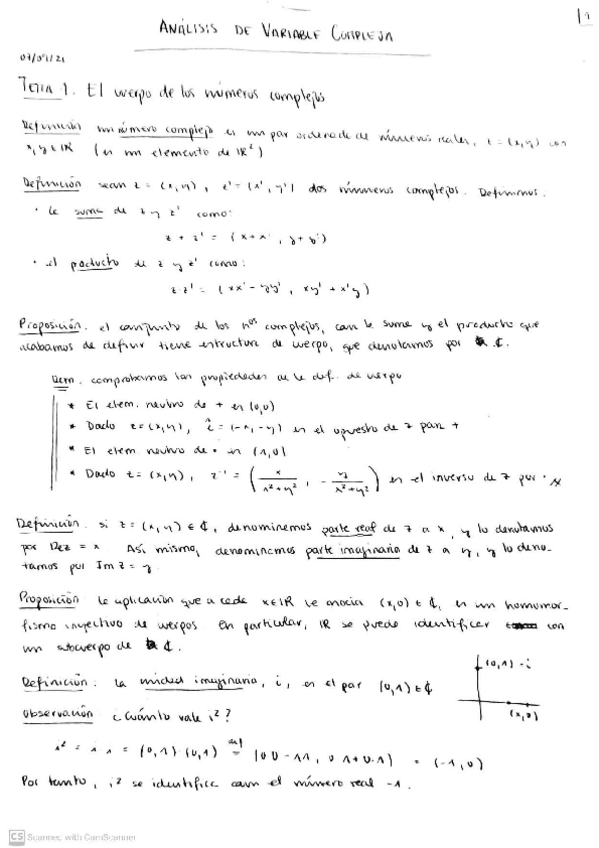 ANÁLISIS DE VARIABLE COMPLEJA
07/09/21
TEMA 1. El cuerpo de los números complejos
Definición un número complejo es un par ordenado de números reales, z = (x,y) con
x,y ∈ IR (es un elemento de IR²)
Definición sean z = (x,y), z' = (x',y') dos números complejos. Definimos.
· la suma de z y z' como:
z + z' = (x+x', y+y')
· el producto de z y z' como:
z·z' = (xx' - yy', xy' + x'y)
Proposición. el conjunto de los nos complejos, con la suma y el producto que
acabamos de definir tiene estructura de cuerpo, que denotamos por ℂ.
Dem. comprobamos las propiedades de la def. de cuerpo
* El elem. neutro de + es (0,0)
* Dado z=(x,y), = (-x,-y) es el opuesto de z para +
* El elem neutro de · es (1,0)
* Dado z=(x,y), z⁻¹ = (x/(x²+y²), -y/(x²+y²)) es el inverso de z por ·
Definición. si z = (x,y) ∈ ℂ, denominemos parte real de z a x, y lo denotamos
por Re z = x Así mismo, denominamos parte imaginaria de z a y, y lo deno-
tamos por Im z = y
Proposición la aplicación que a cada x∈IR le asocia (x,0) ∈ ℂ, es un homomor-
fismo inyectivo de cuerpos En particular, IR se puede identificar con
un subcuerpo de ℂ.
Definición. la unidad imaginaria, i, es el par (0,1) ∈ ℂ
(0,1) = i
(x,0)
Observación ¿Cuánto vale i²?
i² = i·i = (0,1)·(0,1) = (0·0 - 1·1, 0·1+0·1) = (-1,0)
Por tanto, i² se identifica con el número real -1.
CS Scanned with CamScanner